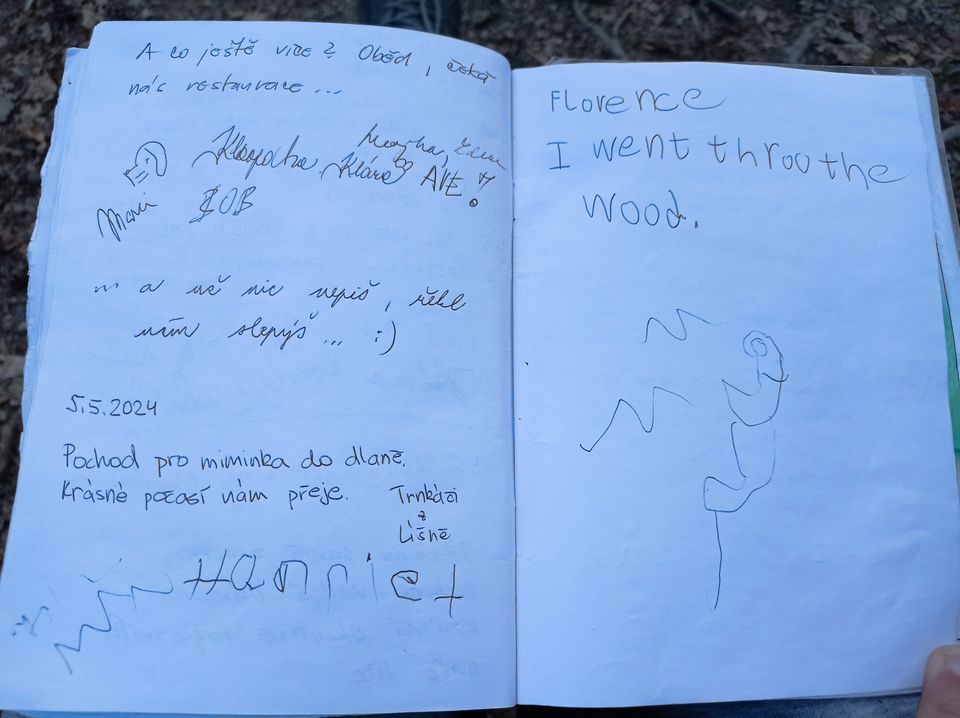 A co ještě více? Oběd, čeká
nás restaurace...
Kleopatra Klára
AVE!
BOB
... a než nic nepíš, řekl
nám slepýš... :)
5.5.2024
Pochod pro miminka do dlaně.
Krásné počasí nám přeje.
Trnkáči
z
Líšně
Harriet
Florence
I went throo the
wood.